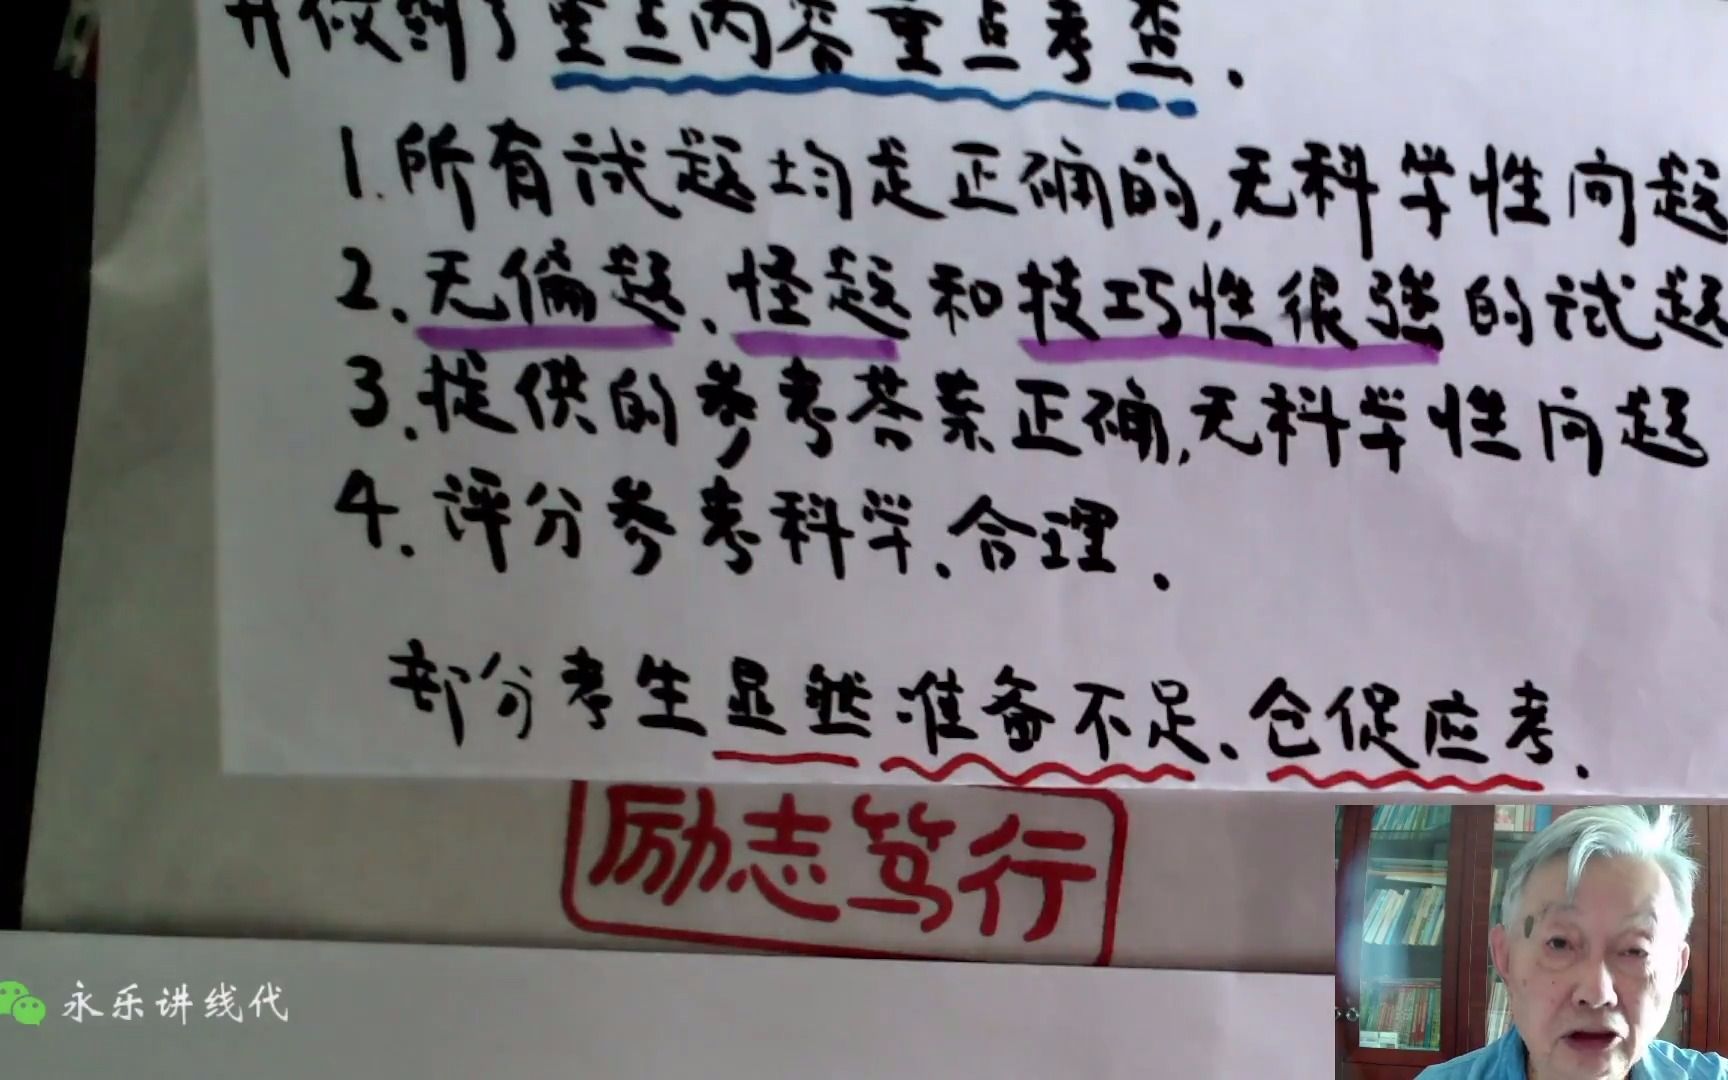 并做到了重点内容重点考查.
1.所有试题均是正确的,无科学性问题
2.无偏题、怪题和技巧性很强的试题
3.提供的参考答案正确,无科学性问题
4.评分参考科学、合理.
部分考生显然准备不足、仓促应考.
励志笃行
永乐讲线代